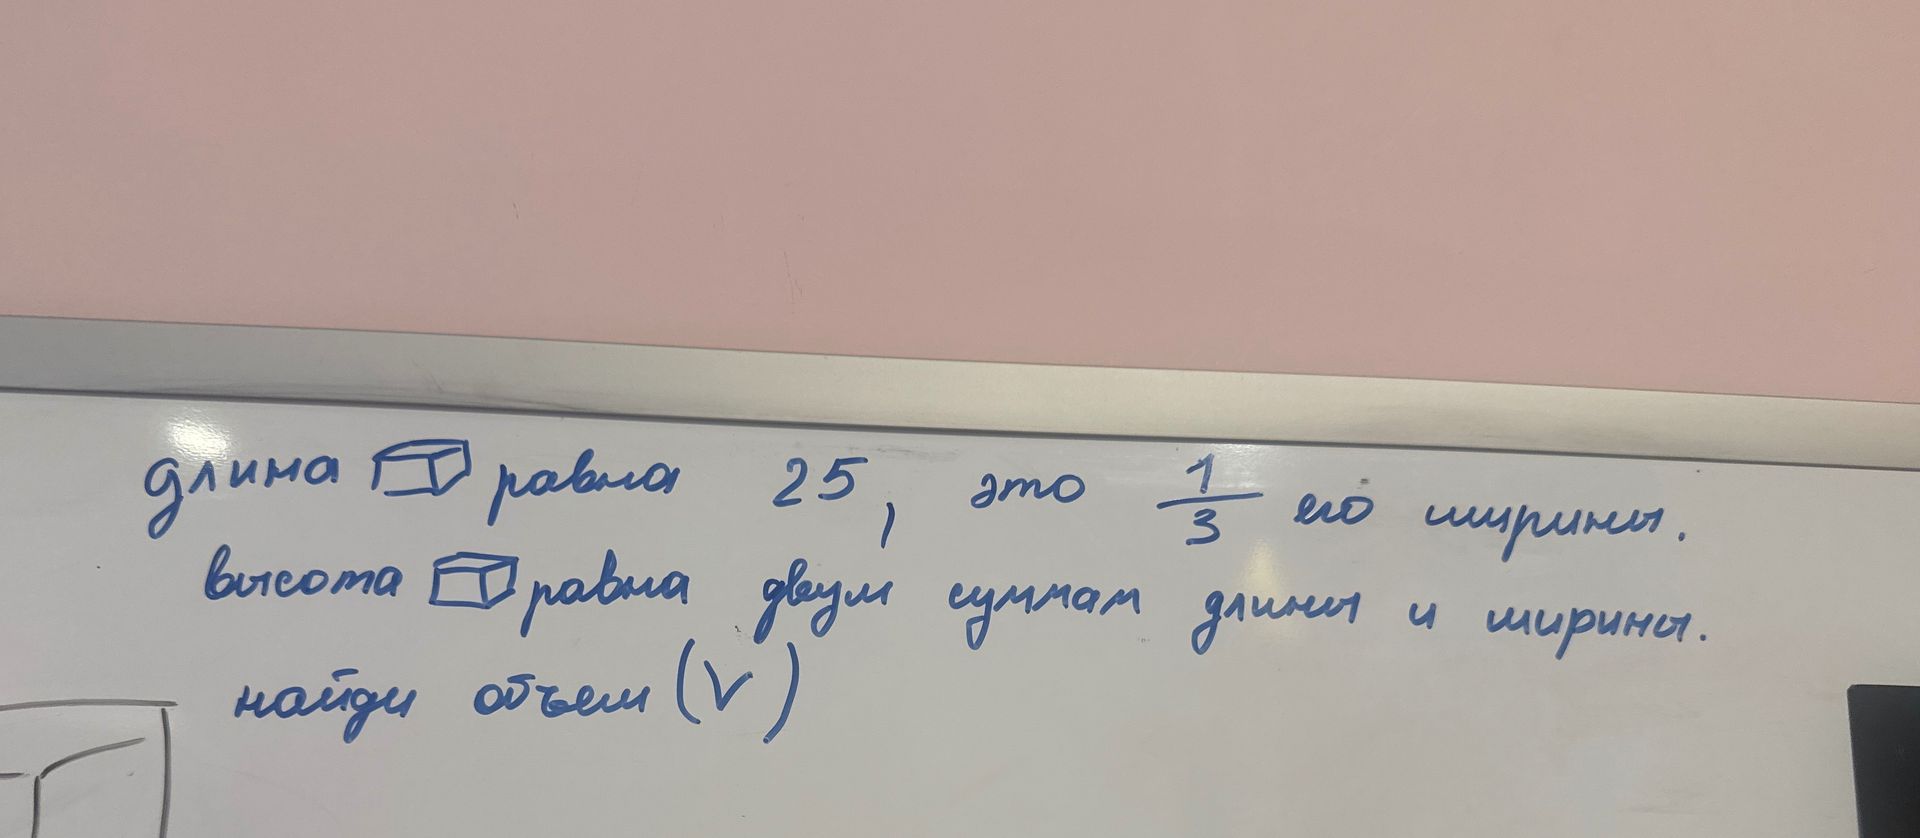 длина равна 25, это 1/3 его ширины.
высота равна двум суммам длины и ширины.
найди объем (V)